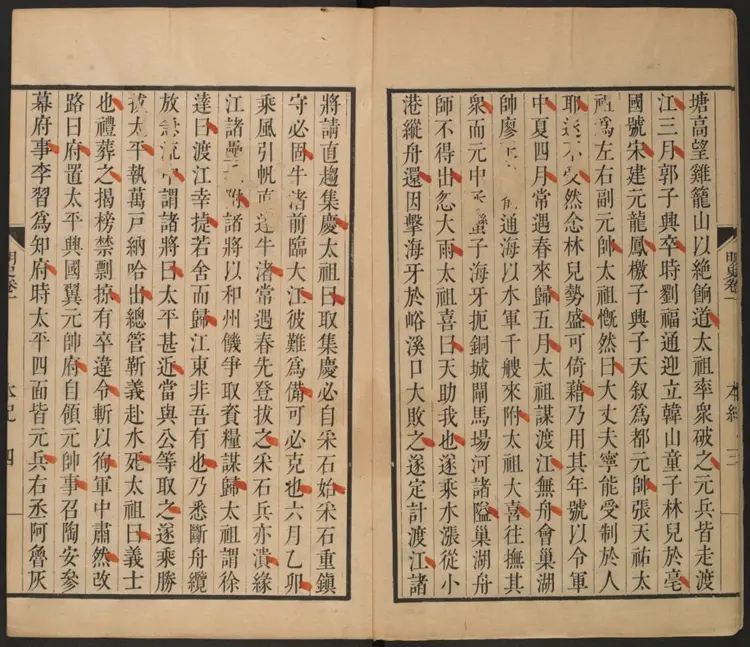 塘高望雞籠山以絶餉道太祖率衆破之元兵皆走渡
江三月郭子興卒時劉福通迎立韓山童子林兒於亳
國號宋建元龍鳳檄子興子天叙爲都元帥張天祐太
祖爲左右副元帥太祖慨然曰大丈夫寧能受制於人
耶遂不受然念林兒勢盛可倚藉乃用其年號以令軍
中夏四月常遇春來歸五月太祖謀渡江無舟會巢湖
帥廖 通海以水軍千艘來附太祖大喜往撫其
衆而元中丞蠻子海牙扼銅城閘馬場河諸隘巢湖舟
師不得出忽大雨太祖喜曰天助我也遂乘水漲從小
港縱舟還因擊海牙於峪溪口大敗之遂定計渡江諸
明史卷一
本紀
三
將請直趨集慶太祖曰取集慶必自采石始采石重鎮
守必固牛渚前臨大江彼難爲備可必克也六月乙卯
乘風引帆直達牛渚常遇春先登拔之采石兵亦潰緣
江諸壘 附諸將以和州饑爭取資糧謀歸太祖謂徐
達曰渡江幸捷若舍而歸江東非吾有也乃悉斷舟纜
放急流中謂諸將曰太平甚近當與公等取之遂乘勝
拔太平執萬戶納哈出總管靳義赴水死太祖曰義士
也禮葬之揭榜禁剽掠有卒違令斬以徇軍中肅然改
路曰府置太平興國翼元帥府自領元帥事召陶安參
幕府事李習爲知府時太平四面皆元兵右丞阿魯灰
明史卷一
本紀
四